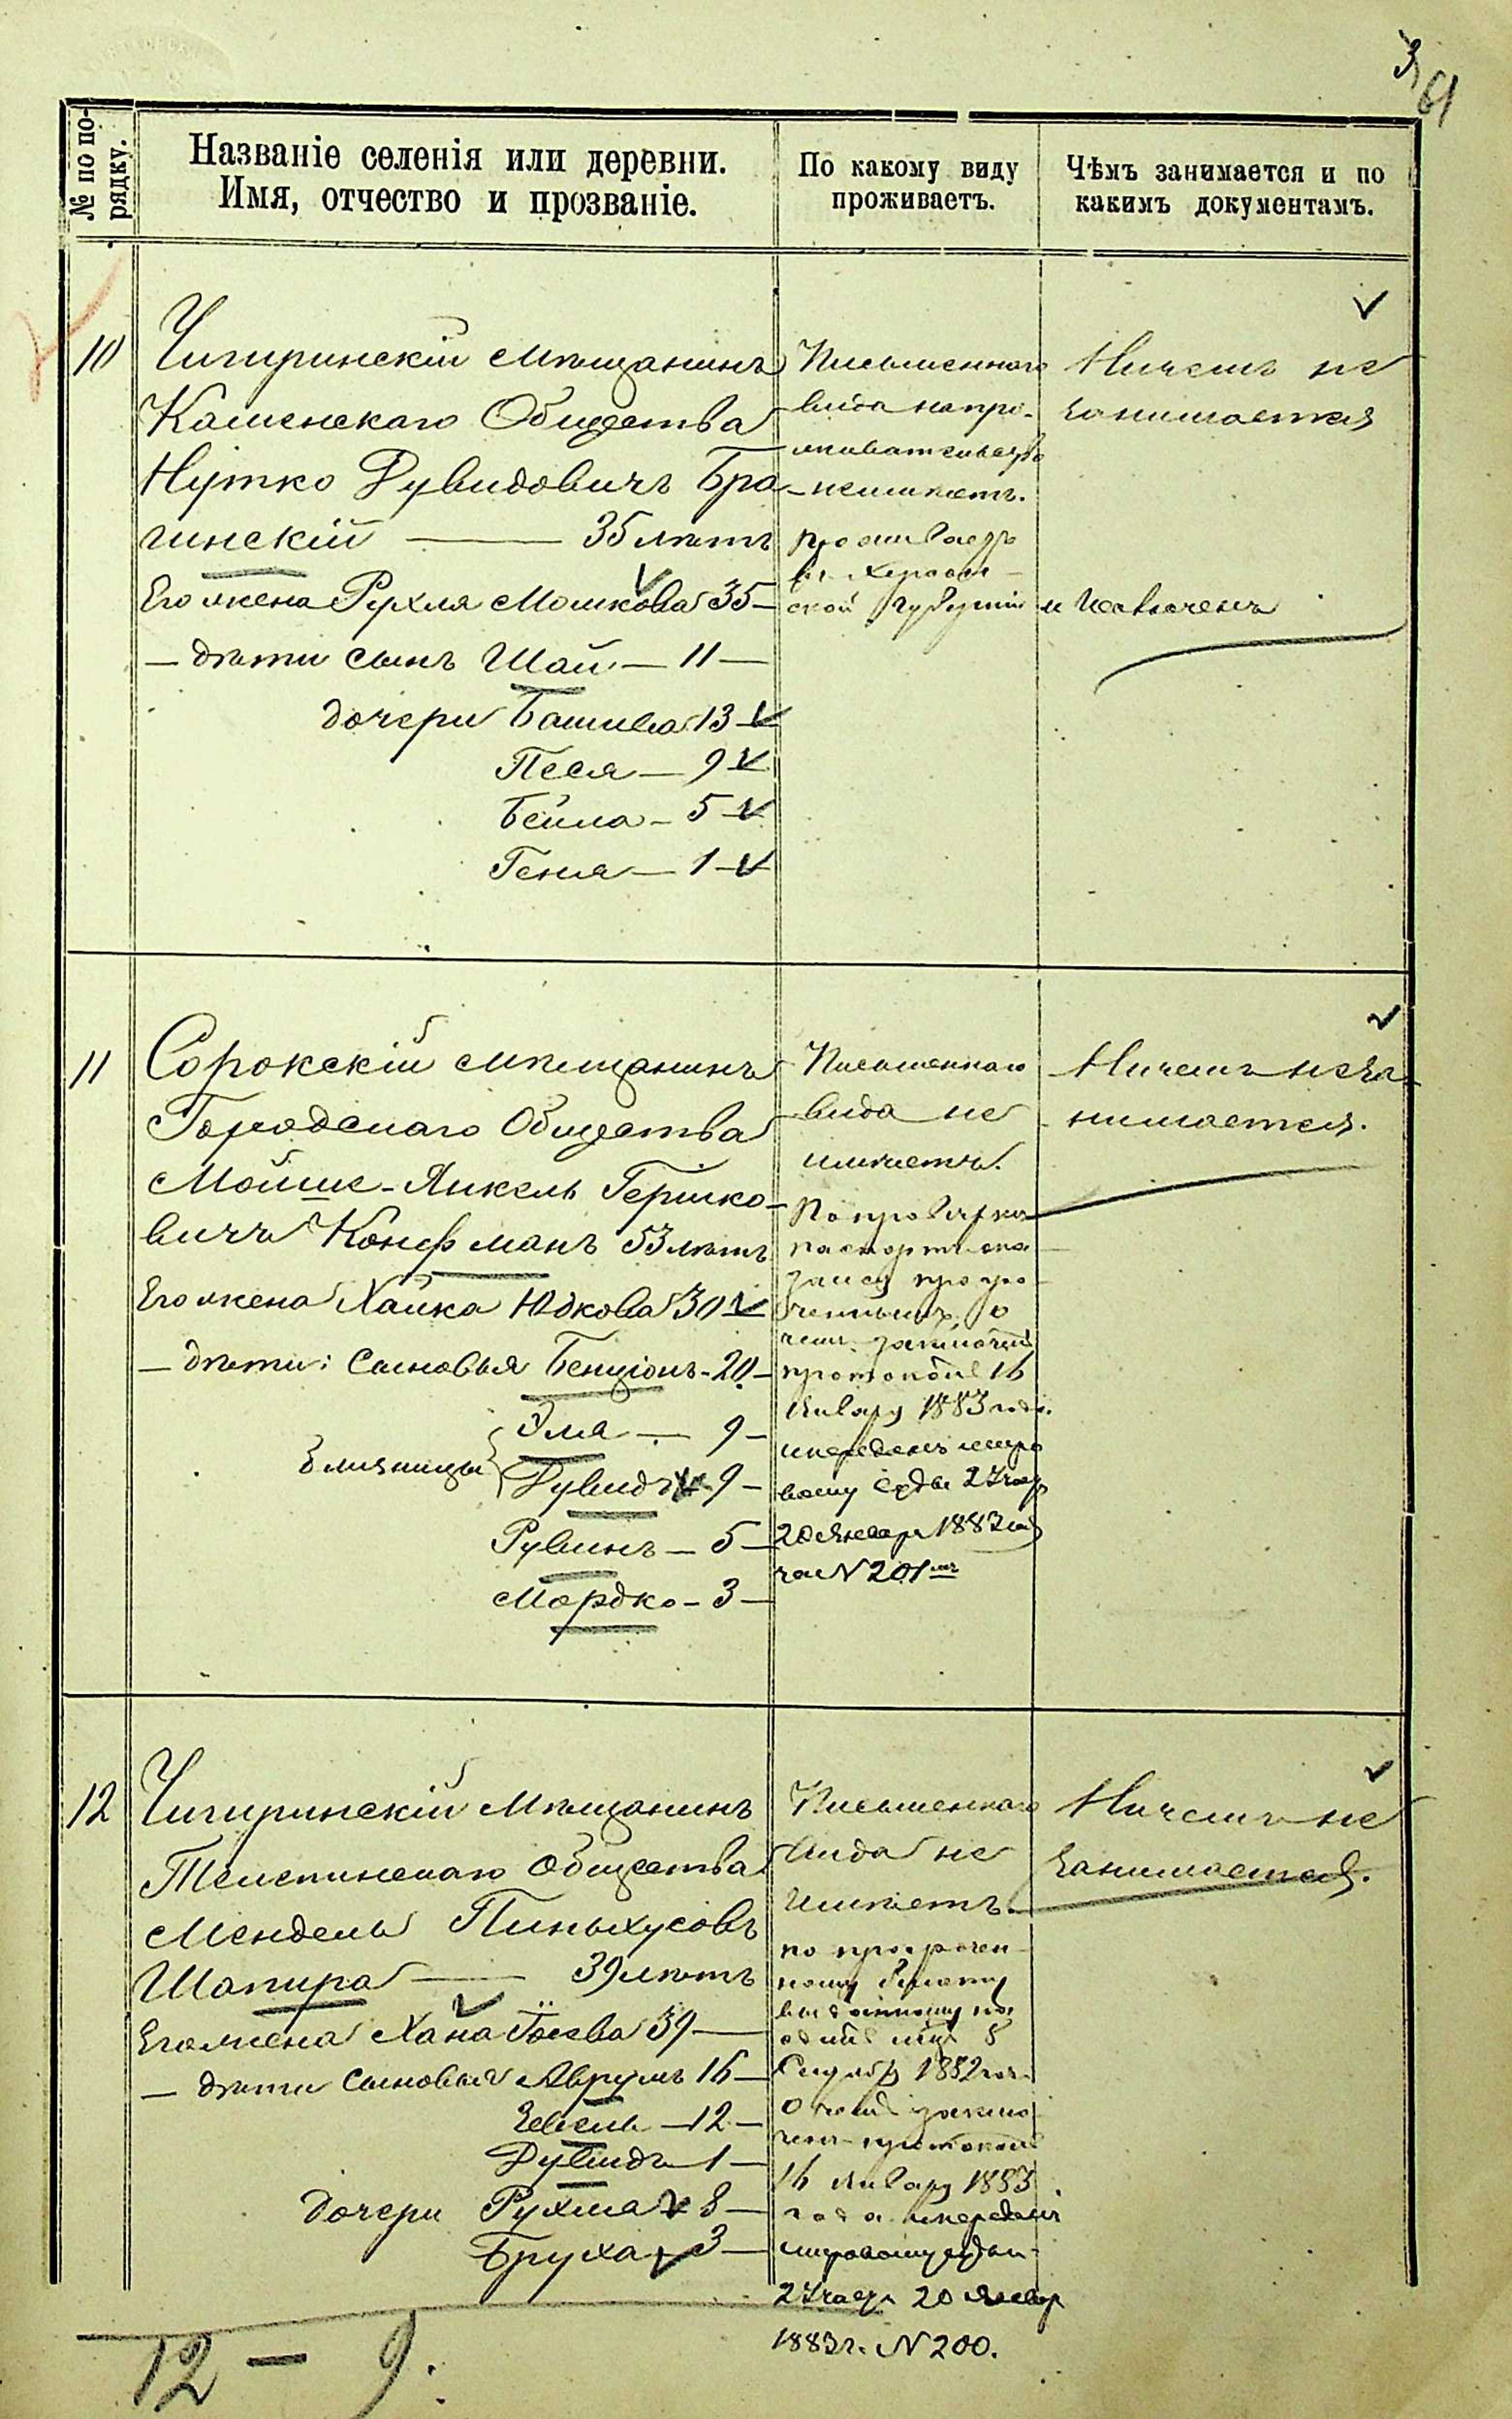 3
61
№ по по-
рядку.
Названіе селенія или деревни.
Имя, отчество и прозваніе.
По какому виду
проживаетъ.
Чѣмъ занимается и по
какимъ документамъ.
10
Чигиринскій мѣщанинъ
Каменскаго Общества
Нутко Дувидовичъ Бра
гинскій — 35 лѣтъ
Его жена Рухля Мошкова 35 —
— дѣти сынъ Шай — 11 —
дочери Башива 13 —
Песя — 9
Бейла — 5
Геня — 1 —
Письменного
вида на про-
живательство
не имѣетъ.
проживаетъ
въ Херсон
ской Губерніи
Ничемъ не
занимается
и исключенъ
11
Сорокскій мѣщанинъ
Городскаго Общества
Мойше-Янкель Гершко-
вичъ Кофманъ 53 лѣтъ
Его жена Хайка Юдкова 30
— дѣти: Сыновья Бенціонъ - 20 —
Эля — 9 —
близницы
Дувидъ 9 —
Рувинъ — 5 —
Мордко — 3 —
Письменнаго
вида не
имѣетъ.
По провѣрки
паспортъ ока
зался просро
ченнымъ, о
чемъ
протоколъ 16
Января 1883 года
и переданъ миро
вому судьи 2 Участ
20 Января 1883 год
за N 201 мъ
Ничемъ не за-
нимается.
12
Чигиринскій Мѣщанинъ
Телепинскаго Общества
Мендель Пинхусовъ
Шапира — 39 лѣтъ
Его жена Хана 39 —
— дѣти сыновья Аврумъ 16 —
Зейвель — 12 —
Дувидъ 1 —
дочери Рухля 8 —
Бруха 3 —
Письменнаго
вида не
имѣетъ.
по просрочен
ному билету
выданному на
5
1882 года
о чемъ заклю
ченъ протоколъ
16 Января 1883
года и переданъ
мировому судьи
2 Участ 20 Январ
1883 г. N 200.
Ничемъ не
занимается.
12 — 9.